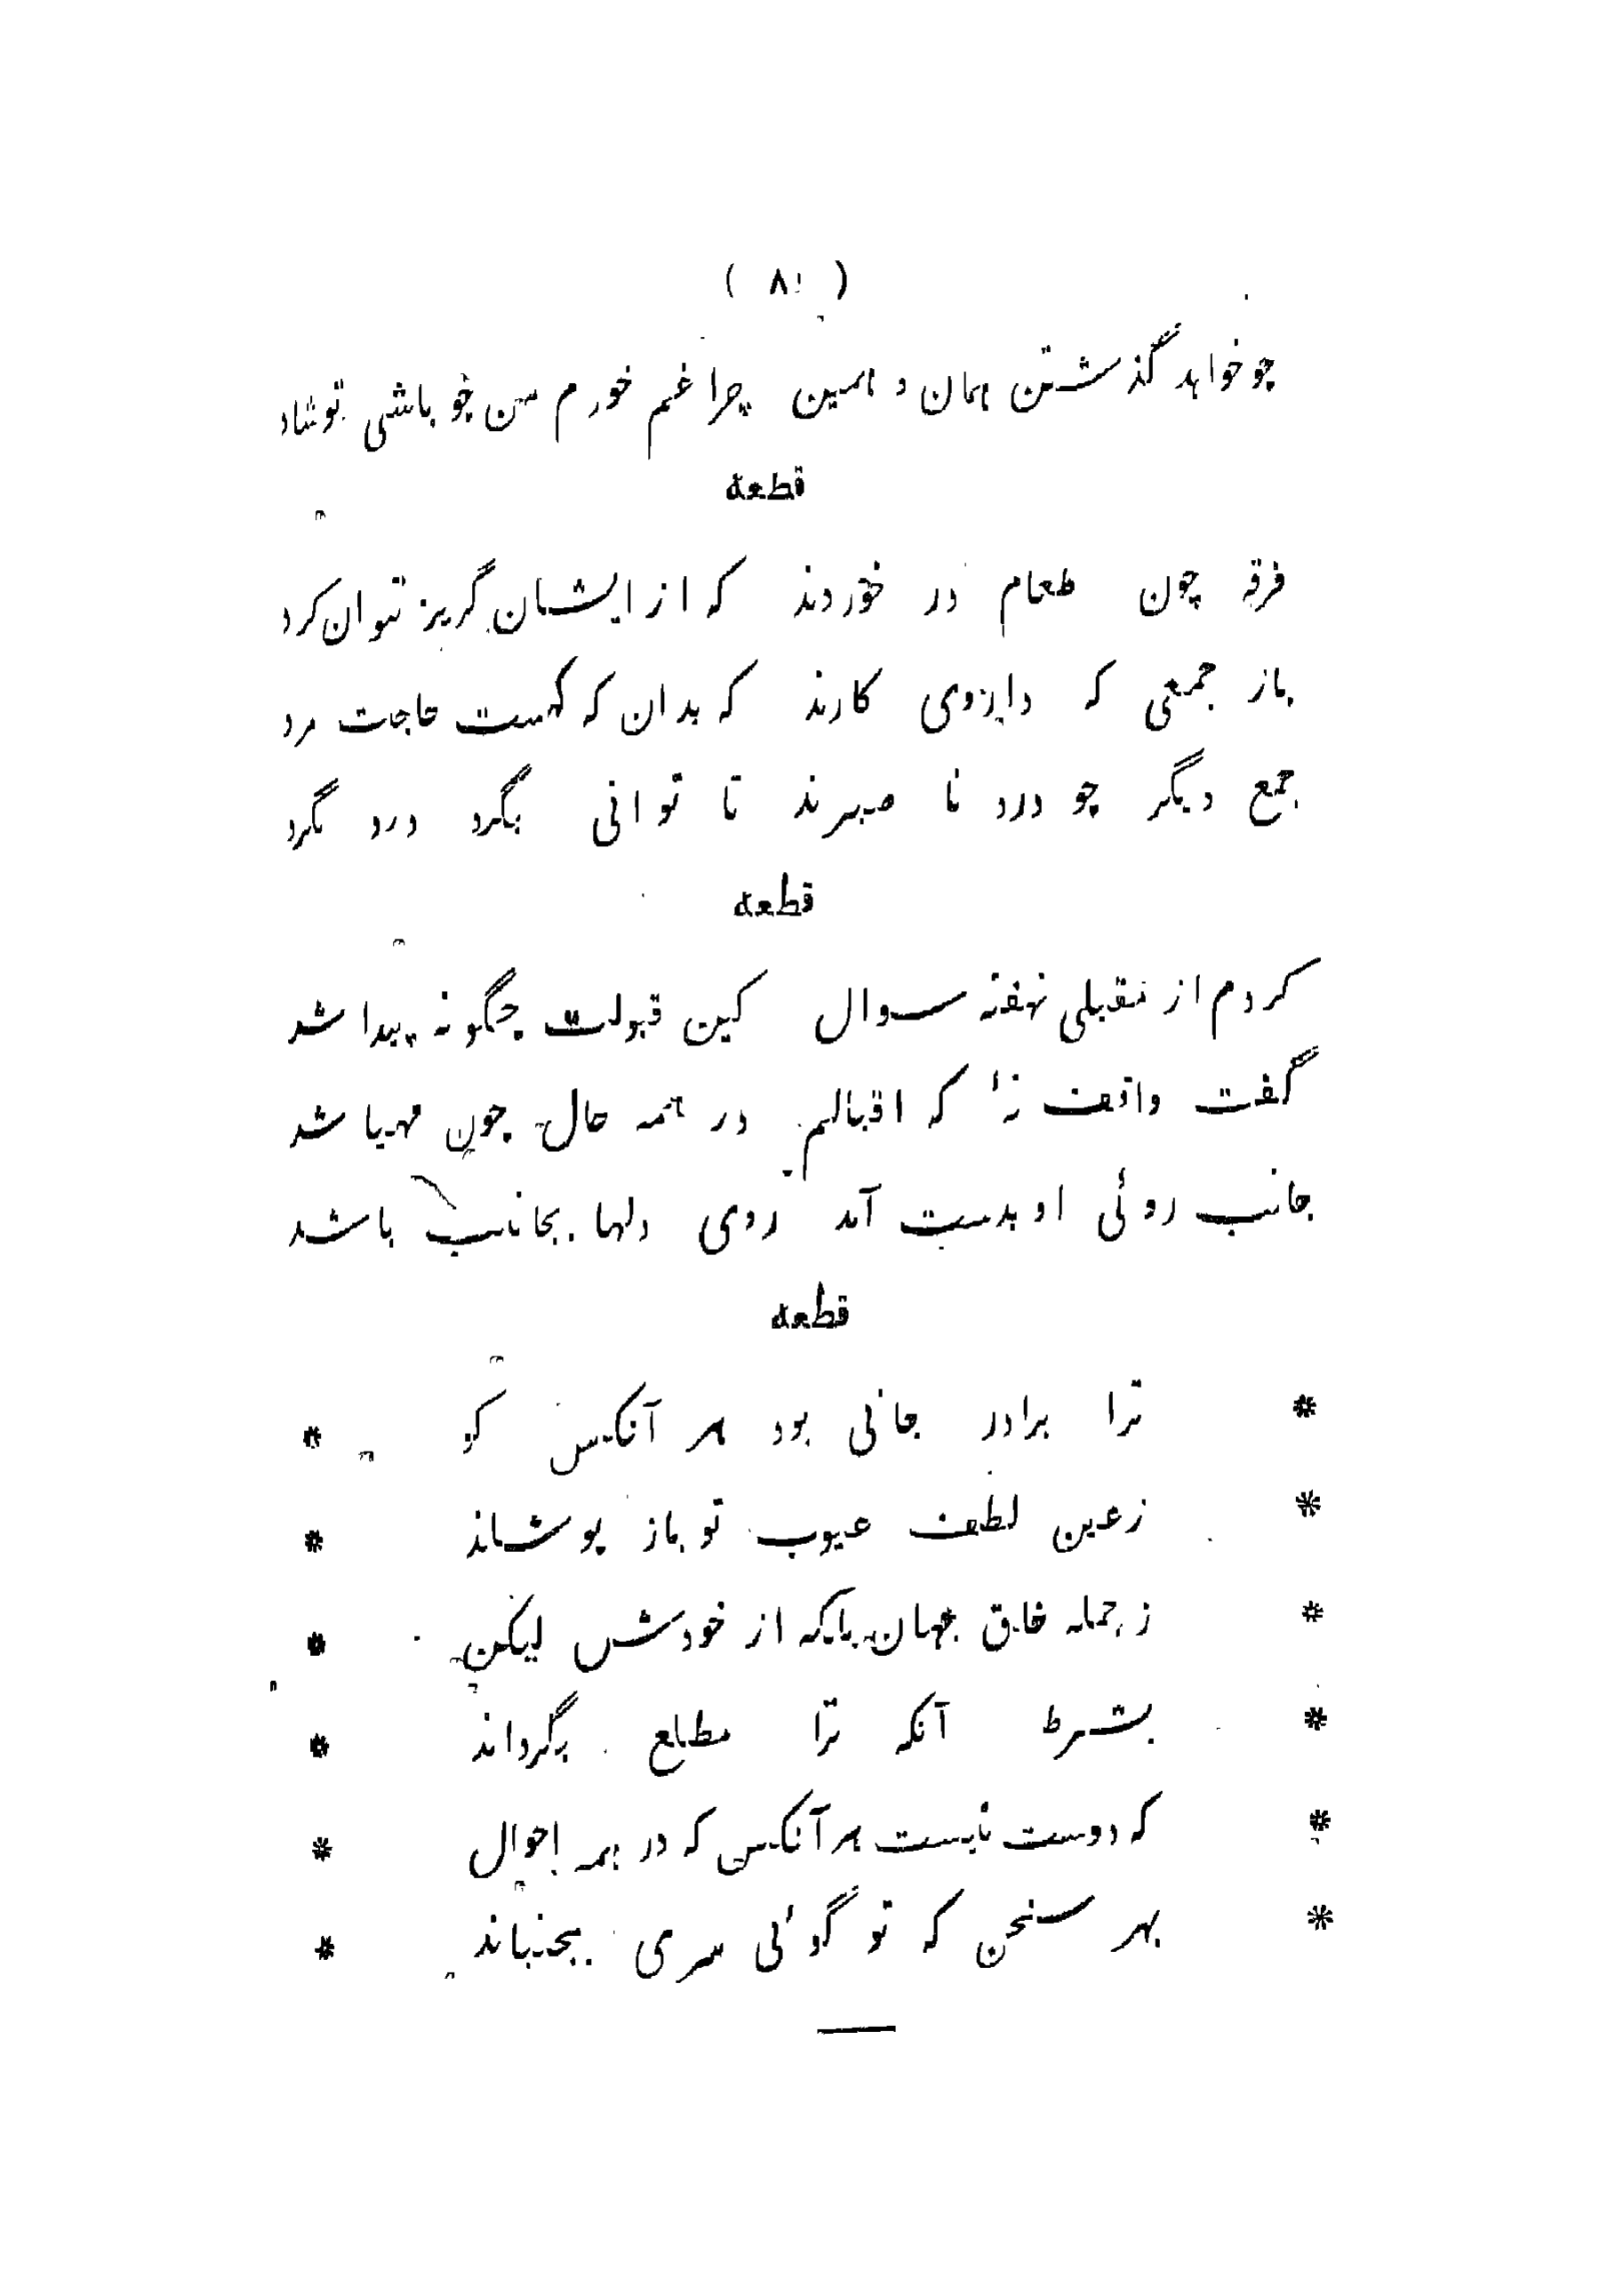 ( ۸۱ )
چو خواهد گذشتن همان و همین چرا غم خورم من چو باشی تو شاد
قطعه
فرقه چون طعام در خوردند که از ایشان گریز نتوان کرد
باز جمعی که داروی کارند که بدان که گهست حاجت مرد
جمع دیگر چو درد نا صبرند تا توانی بگرد درد نگرد
قطعه
کردم از مقبلی نهفته سوال کین قبولت چگونه پیدا شد
گفت واقف نهٔ که اقبالم در همه حال چون مهیا شد
جانب روئی او بدست آمد روی دلها بجانب باشد
قطعه
* ترا برادر جانی بود هر آنکس کو *
* زعین لطف عیوب تو باز پوشاند *
* ز جمله خلق جهان بلکه از خودش لیکن *
* بشرط آنکه ترا مطلع بگرداند *
* که دوست نیست هر آنکس که در همه احوال *
* بهر سخن که تو گوئی سری بجنباند *